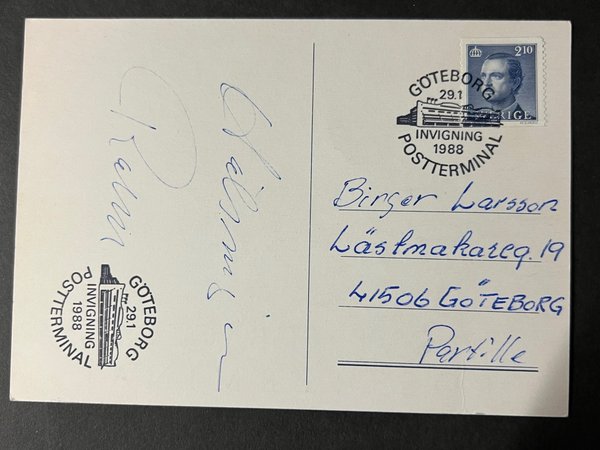 2.10
RIGE
GÖTEBORG
29.1
INVIGNING
1988
POSTTERMINAL
Birger Larsson
Lästmakareg. 19
41506 GÖTEBORG
Partille
GÖTEBORG
29.1
INVIGNING
1988
POSTTERMINAL